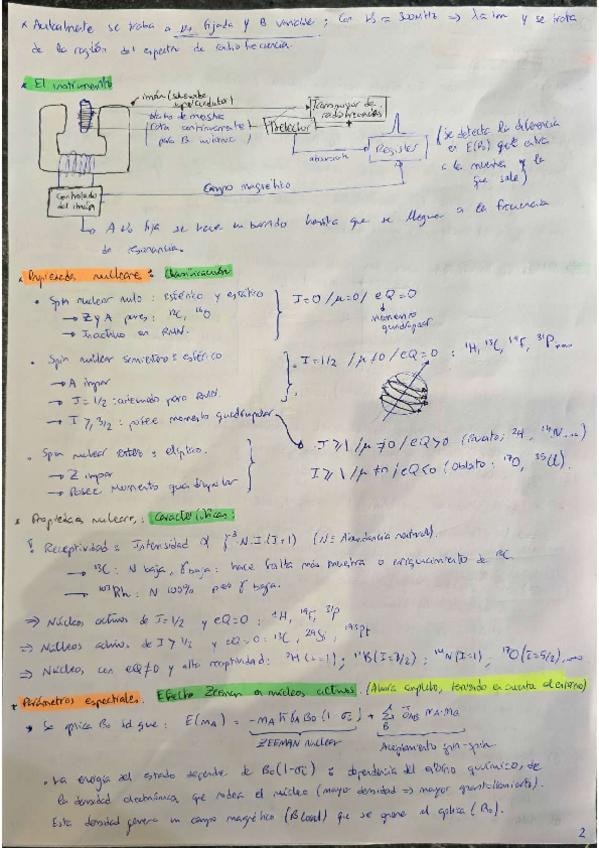 * Actualmente se trabaja a ν₀ fijada y B variable; Con ν₀ = 300MHz ⇒ λ=1m y se trata
de la región del espectro de radiofrecuencia.
* El instrumento
imán (solenoide superconductor)
Transmisor de radiofrecuencias
Detector
Registro
absorbancia
(se detecta la diferencia
en E(B₀) que entra
a la muestra y la
que sale)
Controlador del imán
Campo magnético
→ A ν₀ fija se hace un barrido hasta que se llegue a la frecuencia
de resonancia.
* Propiedades nucleares: Clasificación
• Spin nuclear nulo: esférico y estático
→ Z y A pares: ¹²C, ¹⁶O
→ Inactivo en RMN.
I=0 / μ=0 / eQ=0
momento quadrupolar
• Spin nuclear semientero: esférico
→ A impar
→ I=1/2 : adecuado para RMN.
→ I ≥ 3/2 : posee momento quadrupolar
I=1/2 / μ≠0 / eQ=0 : ¹H, ¹³C, ¹⁹F, ³¹P
• Spin nuclear entero: elíptico.
→ Z impar
→ Posee Momento quadrupolar
I≥1 / μ≠0 / eQ>0 (²H, ¹⁴N...)
I≥1 / μ≠0 / eQ<0 (Oblato: ¹⁷O, ³⁵Cl).
* Propiedades nucleares: Características:
Receptividad: Intensidad α γ³·N·I·(I+1) (N= Abundancia natural).
→ ¹³C: N baja, γ baja: hace falta más muestra o enriquecimiento de ¹³C.
→ ¹⁰³Rh: N 100% pero γ baja.
⇒ Núcleos activos de I=1/2 y eQ=0: ¹H, ¹⁹F, ³¹P
⇒ Núcleos activos de I>1/2 y eQ=0: ¹³C, ²⁹Si, ¹⁹⁵Pt
⇒ Núcleos con eQ≠0 y alta receptividad: ²H (I=1); ¹¹B (I=3/2); ¹⁴N (I=1), ¹⁷O (I=5/2),...
* Parámetros espectrales. Efecto Zeeman en núcleos activos. (Ahora completo, teniendo en cuenta el entorno)
• Se aplica B₀ tal que: E(mA) = -mA ħ γA B₀ (1-σ) + Σ JAB mA·mB
ZEEMAN nuclear
Acoplamiento spin-spin
• La energía del estado depende de B₀(1-σ): dependencia del entorno químico, de
la densidad electrónica que rodea el núcleo (mayor densidad ⇒ mayor apantallamiento).
Esta densidad genera un campo magnético (B local) que se opone al aplica (B₀).
2